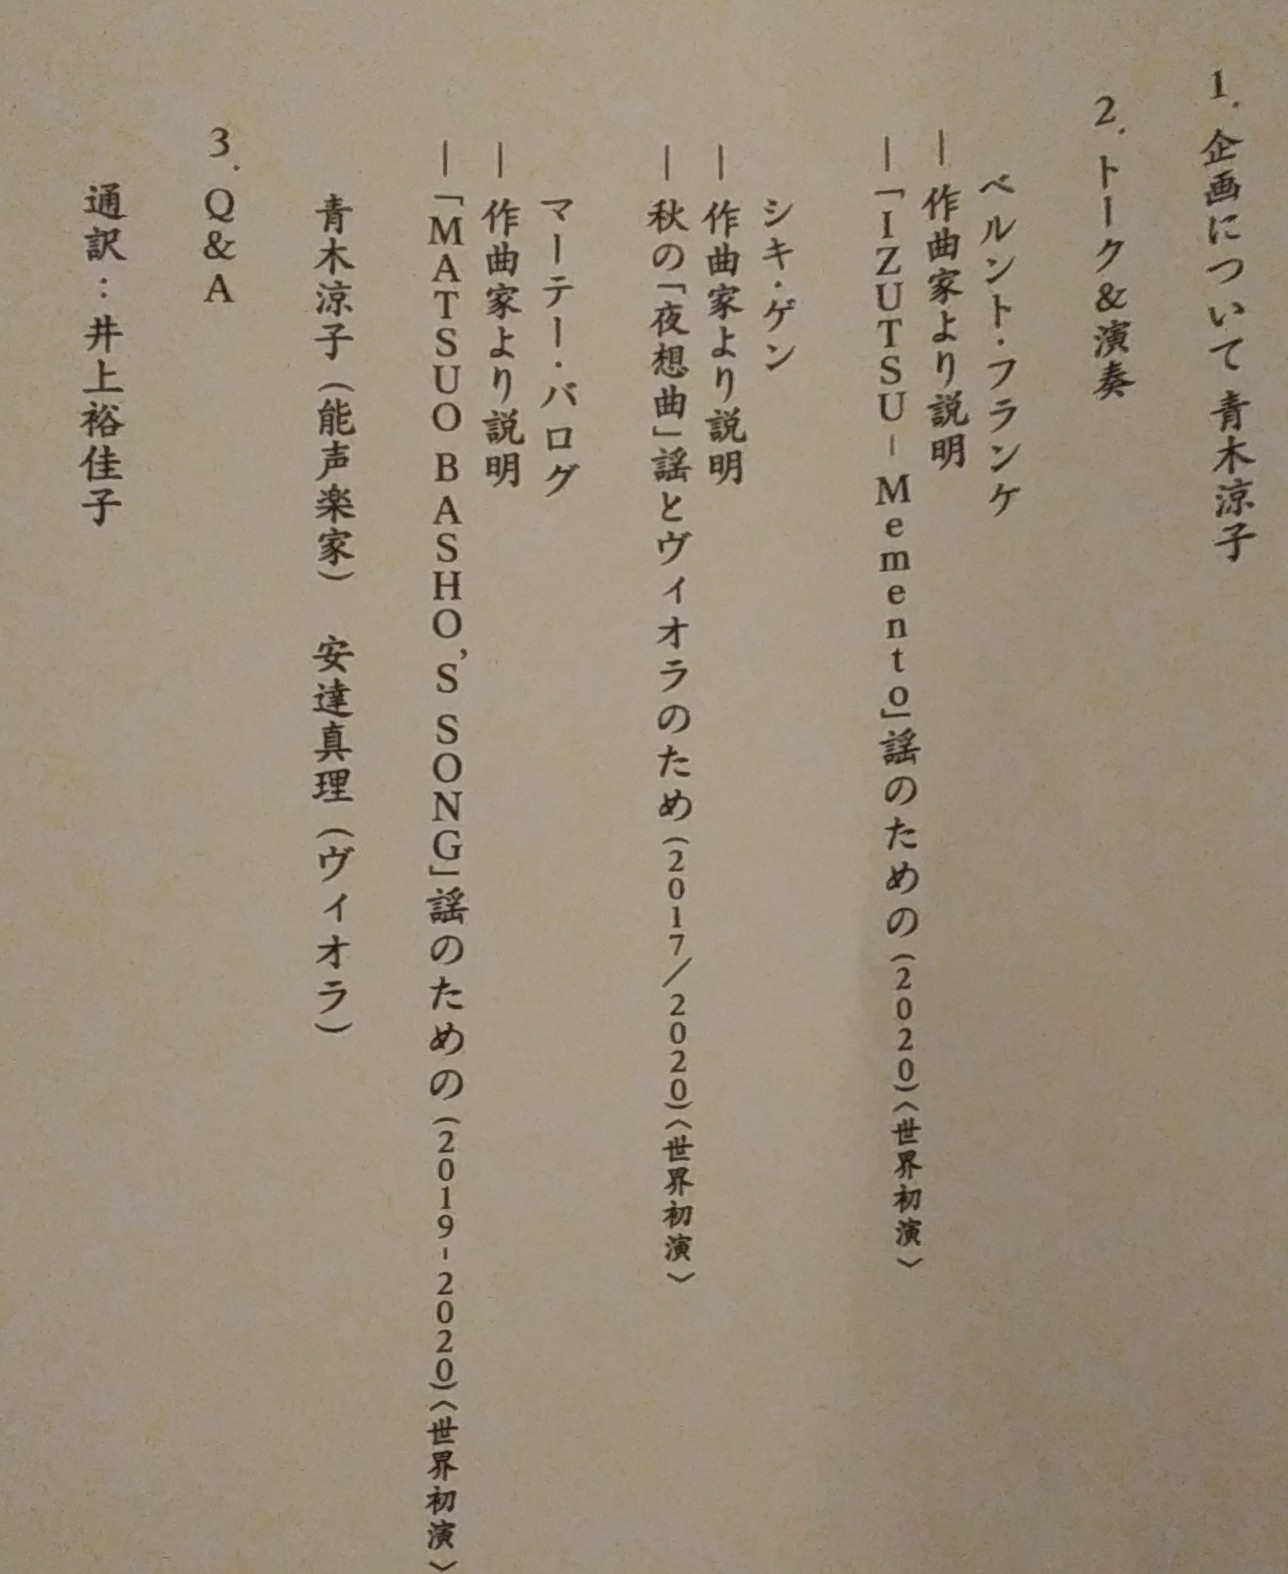 1. 企画について 青木涼子
2. トーク&演奏
ベルント・フランケ
— 作曲家より説明
—「IZUTSU – Memento」謡のための(2020)〈世界初演〉
シキ・ゲン
— 作曲家より説明
— 秋の「夜想曲」謡とヴィオラのため(2017／2020)〈世界初演〉
マーテー・バログ
— 作曲家より説明
—「MATSUO BASHO'S SONG」謡のための(2019-2020)〈世界初演〉
青木涼子(能声楽家) 安達真理(ヴィオラ)
3. Q&A
通訳：井上裕佳子